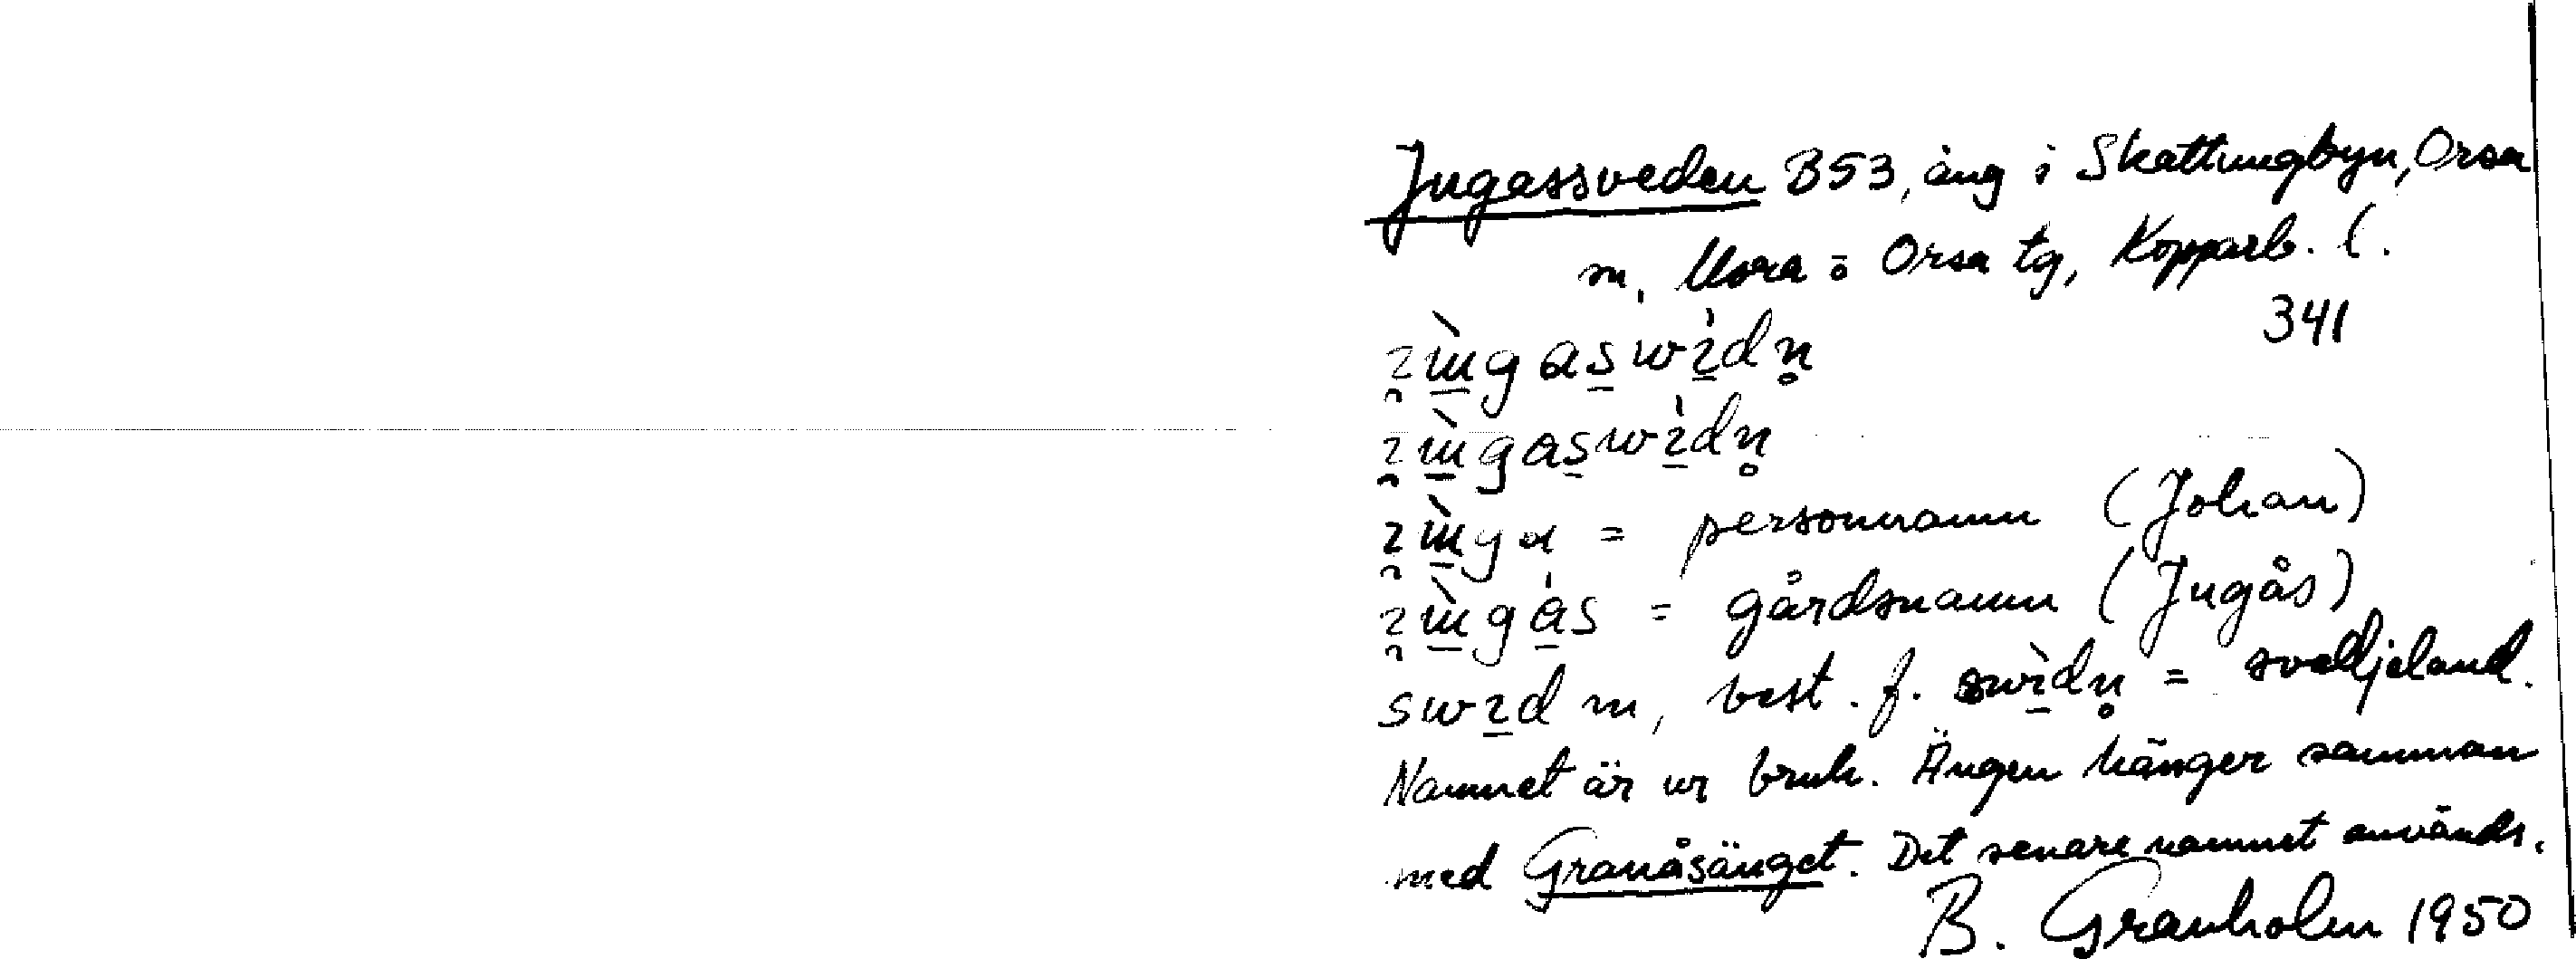 Jugassveden B53, äng i Skattungbyn, Orsa
sn, Mora o Orsa tg, Kopparb. l.
341
= personnamn (Johan)
= gårdsnamn (Jugås)
m, best. f. = svedjeland.
Namnet är ur bruk. Ängen hänger samman
med Granåsänget. Det senare namnet används.
B. Granholm 1950